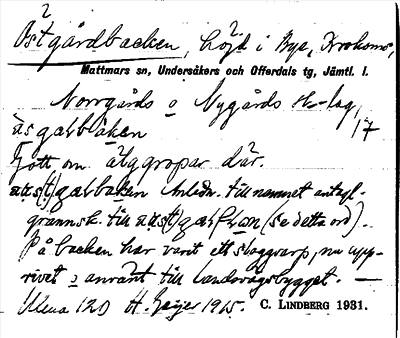 Östgårdbacken, höjd i Bye, Krokoms,
Mattmars sn, Undersåkers och Offerdals tg, Jämtl. l.
Norrgårds o Nygårds sk-lag,
17
åsgarbákən
Gott om älggropar där.
Anledn. till namnet antagl.
grannsk. till (se detta ord).
På backen har varit ett slaggvarp, nu upp-
rivet o använt till landsvägsbygget. —
120 H. Geijer 1915. C. LINDBERG 1931.